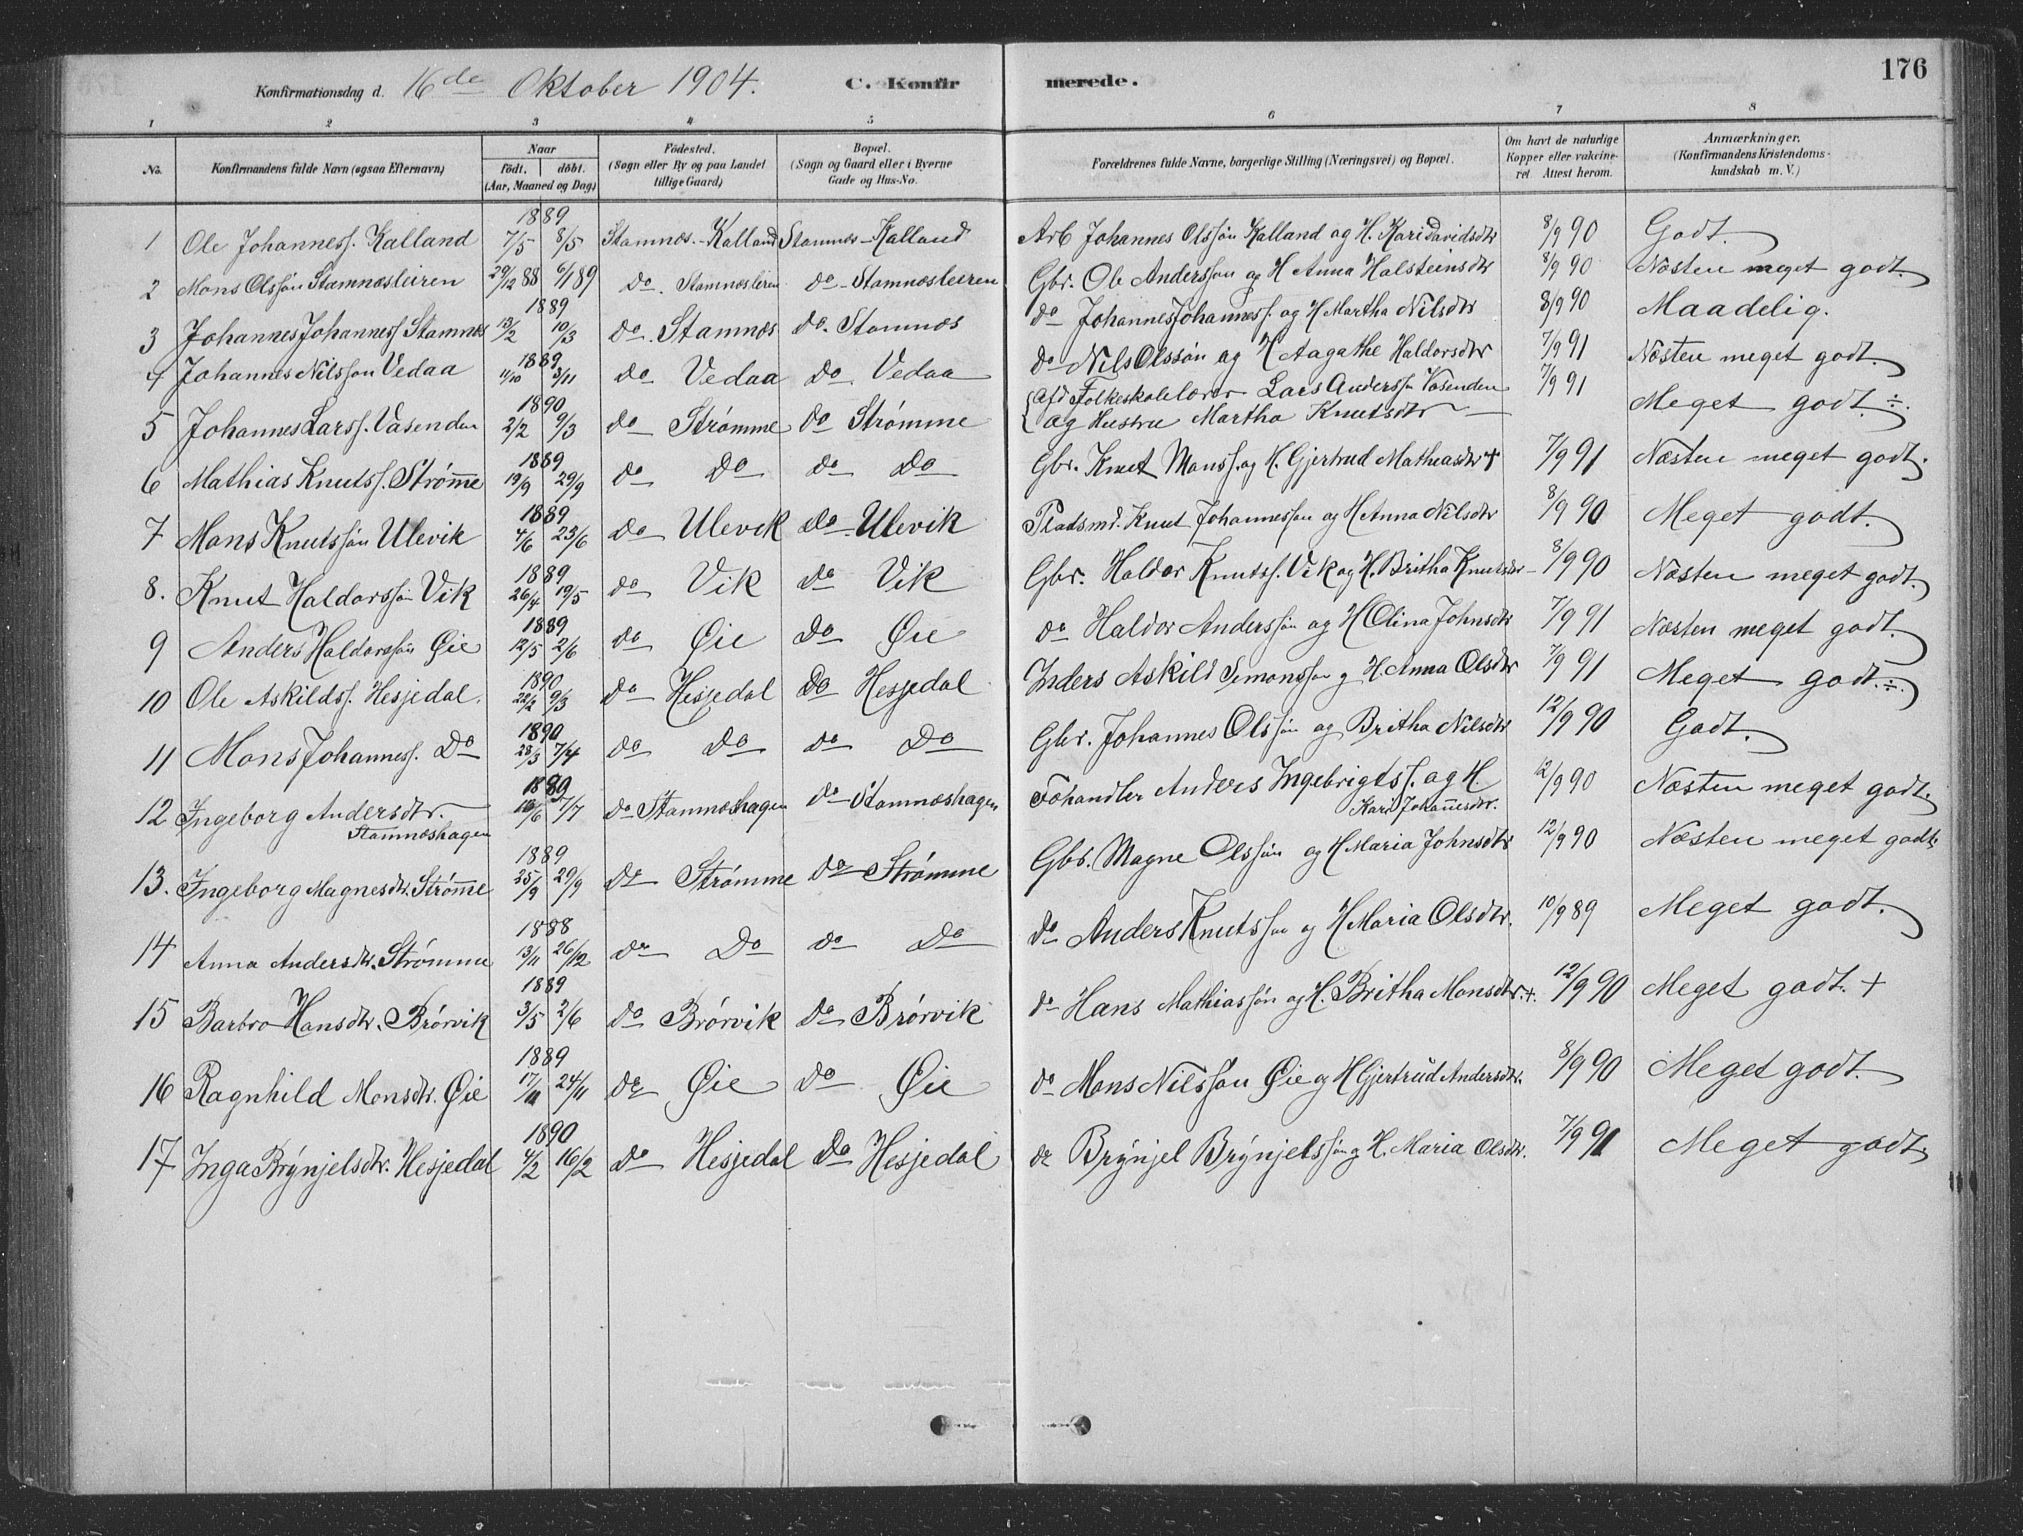 176
Konfirmationsdag d. 16de Oktober 1904. C. Konfirmerede.
1 2 3 4 5 6 7 8
No. Konfirmandens fulde Navn (ogsaa Efternavn) Naar födt. döbt. (Aar, Maaned og Dag) Födested. (Sogn eller By og paa Landet tillige Gaard) Bopæl. (Sogn og Gaard eller i Byerne Gade og Hus-No. Forældrenes fulde Navne, borgerlige Stilling (Næringsvei) og Bopæl. Om havt de naturlige Kopper eller vakcineret Attest herom. Anmærkninger. (Konfirmandens Kristendomskundskab m. V.)
1 Ole Johanness. Kalland 1889 7/5 8/5 Stamnæs-Kalland Stamnæs-Kalland Arb Johannes Olssøn Kalland og H. Kari Davidsdtr 8/9 90 Godt.
2 Mons Olssøn Stamnæsleiren 29/12 88 6/1 89 do Stamnæsleiren do Stamnæsleiren Gbr. Ole Anderssøn og H Anna Halsteinsdtr 8/9 90 Næsten meget godt.
3 Johannes Johanness. Stamnæs 1889 13/2 10/3 do. Stamnæs do. Stamnæs do Johannes Johanness. og H Martha Nilsdtr 8/9 90 Maadelig.
4 Johannes Nilssøn Vedaa 1889 11/10 3/11 do Vedaa do Vedaa do Nils Olssøn og H Aagathe Haldorsdtr 7/9 91 Næsten meget godt.
5 Johannes Larss. Vasenden 1890 2/2 9/3 do Strømme do Strømme Afd Folkeskolelærer Lars Anderssn Vasenden og Hustru Martha Knutsdtr 7/9 91 Meget godt ÷.
6 Mathias Knutss. Strømme 1889 19/9 29/9 do Do do Do Gbr. Knut Monss. og H. Gjertrud Mathiasdtr + 7/9 91 Næsten meget godt.
7 Mons Knutssøn Ulevik 1889 4/6 23/6 do Ulevik do Ulevik Pladsmd. Knut Johannessøn og H Anna Nilsdtr 8/9 90 Meget godt.
8. Knut Haldorssøn Vik 1889 26/4 19/5 do Vik do Vik Gbr. Haldor Knutss. Vik og H. Britha Knutsdtr 8/9 90 Næsten meget godt.
9 Anders Haldorssøn Øie 1889 12/5 2/6 do Øie Do Øie do Haldor Anderssøn og H Olina Johnsdtr 7/9 91 Næsten meget godt.
10 Ole Askildss. Hesjedal. 1890 22/2 9/3 do Hesjedal Do Hesjedal Inders Askild Simonssøn og H. Anna Olsdtr 7/9 91 Meget godt ÷.
11 Mons Johanness. Do 1890 28/3 7/4 do Do do Do Gbr. Johannes Olssøn og Britha Nilsdtr 12/9 90 Godt.
12 Ingeborg Andersdtr. Stamnæshagen 1889 7/7 do Stamnæshagen do Stamnæshagen Fohandler Anders Ingebrigtss. og H. Kari Johannesdtr. 12/9 90 Næsten meget godt.
13. Ingeborg Magnesdtr. Strømme 1889 25/9 29/9 do Strømme do Strømme Gbr. Magne Olssøn og H Maria Johnsdtr 12/9 90 Næsten meget godt.
14 Anna Andersdtr. Strømme 1888 13/11 26/12 do Do do Do do Anders Knutssøn og H Maria Olsdtr. 10/9 89 Meget godt.
15 Barbro Hansdtr. Brørvik 1889 3/5 2/6 do Brørvik do Brørvik do Hans Mathiassøn og H. Britha Monsdtr. +. 12/9 90 Meget godt. +
16 Ragnhild Monsdtr. Øie 1889 17/11 24/11 do Øie do Øie do Mons Nilssøn Øie og H Gjertrud Andersdtr. 8/9 90 Meget godt.
17 Inga Brynjelsdtr. Hesjedal 1890 4/2 16/2 do Hesjedal Do Hesjedal do Brynjel Brynjelssøn og H. Maria Olsdtr. 7/9 91 Meget godt.